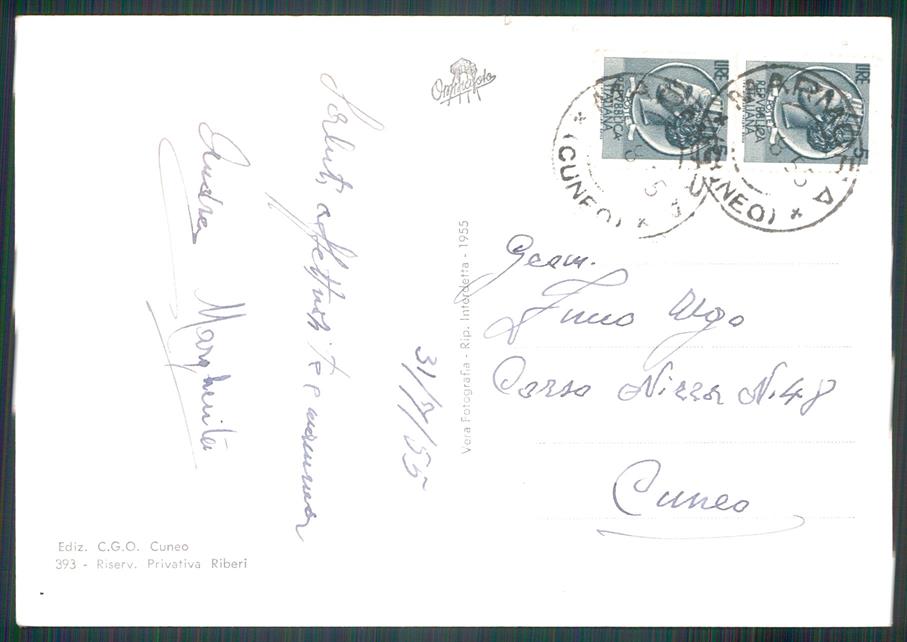 Saluti affettuosi te e mamma
Andrea Margherita
31/7/55
Vera Fotografia - Rip. Interdetta - 1955
Geom.
Ugo
Corso Nizza N. 48
Cuneo
Ediz. C.G.O. Cuneo
393 - Riserv. Privativa Riberi
5 LIRE
REPVBBLICA
ITALIANA
5 LIRE
REPVBBLICA
ITALIANA
(CUNEO)
(CUNEO)